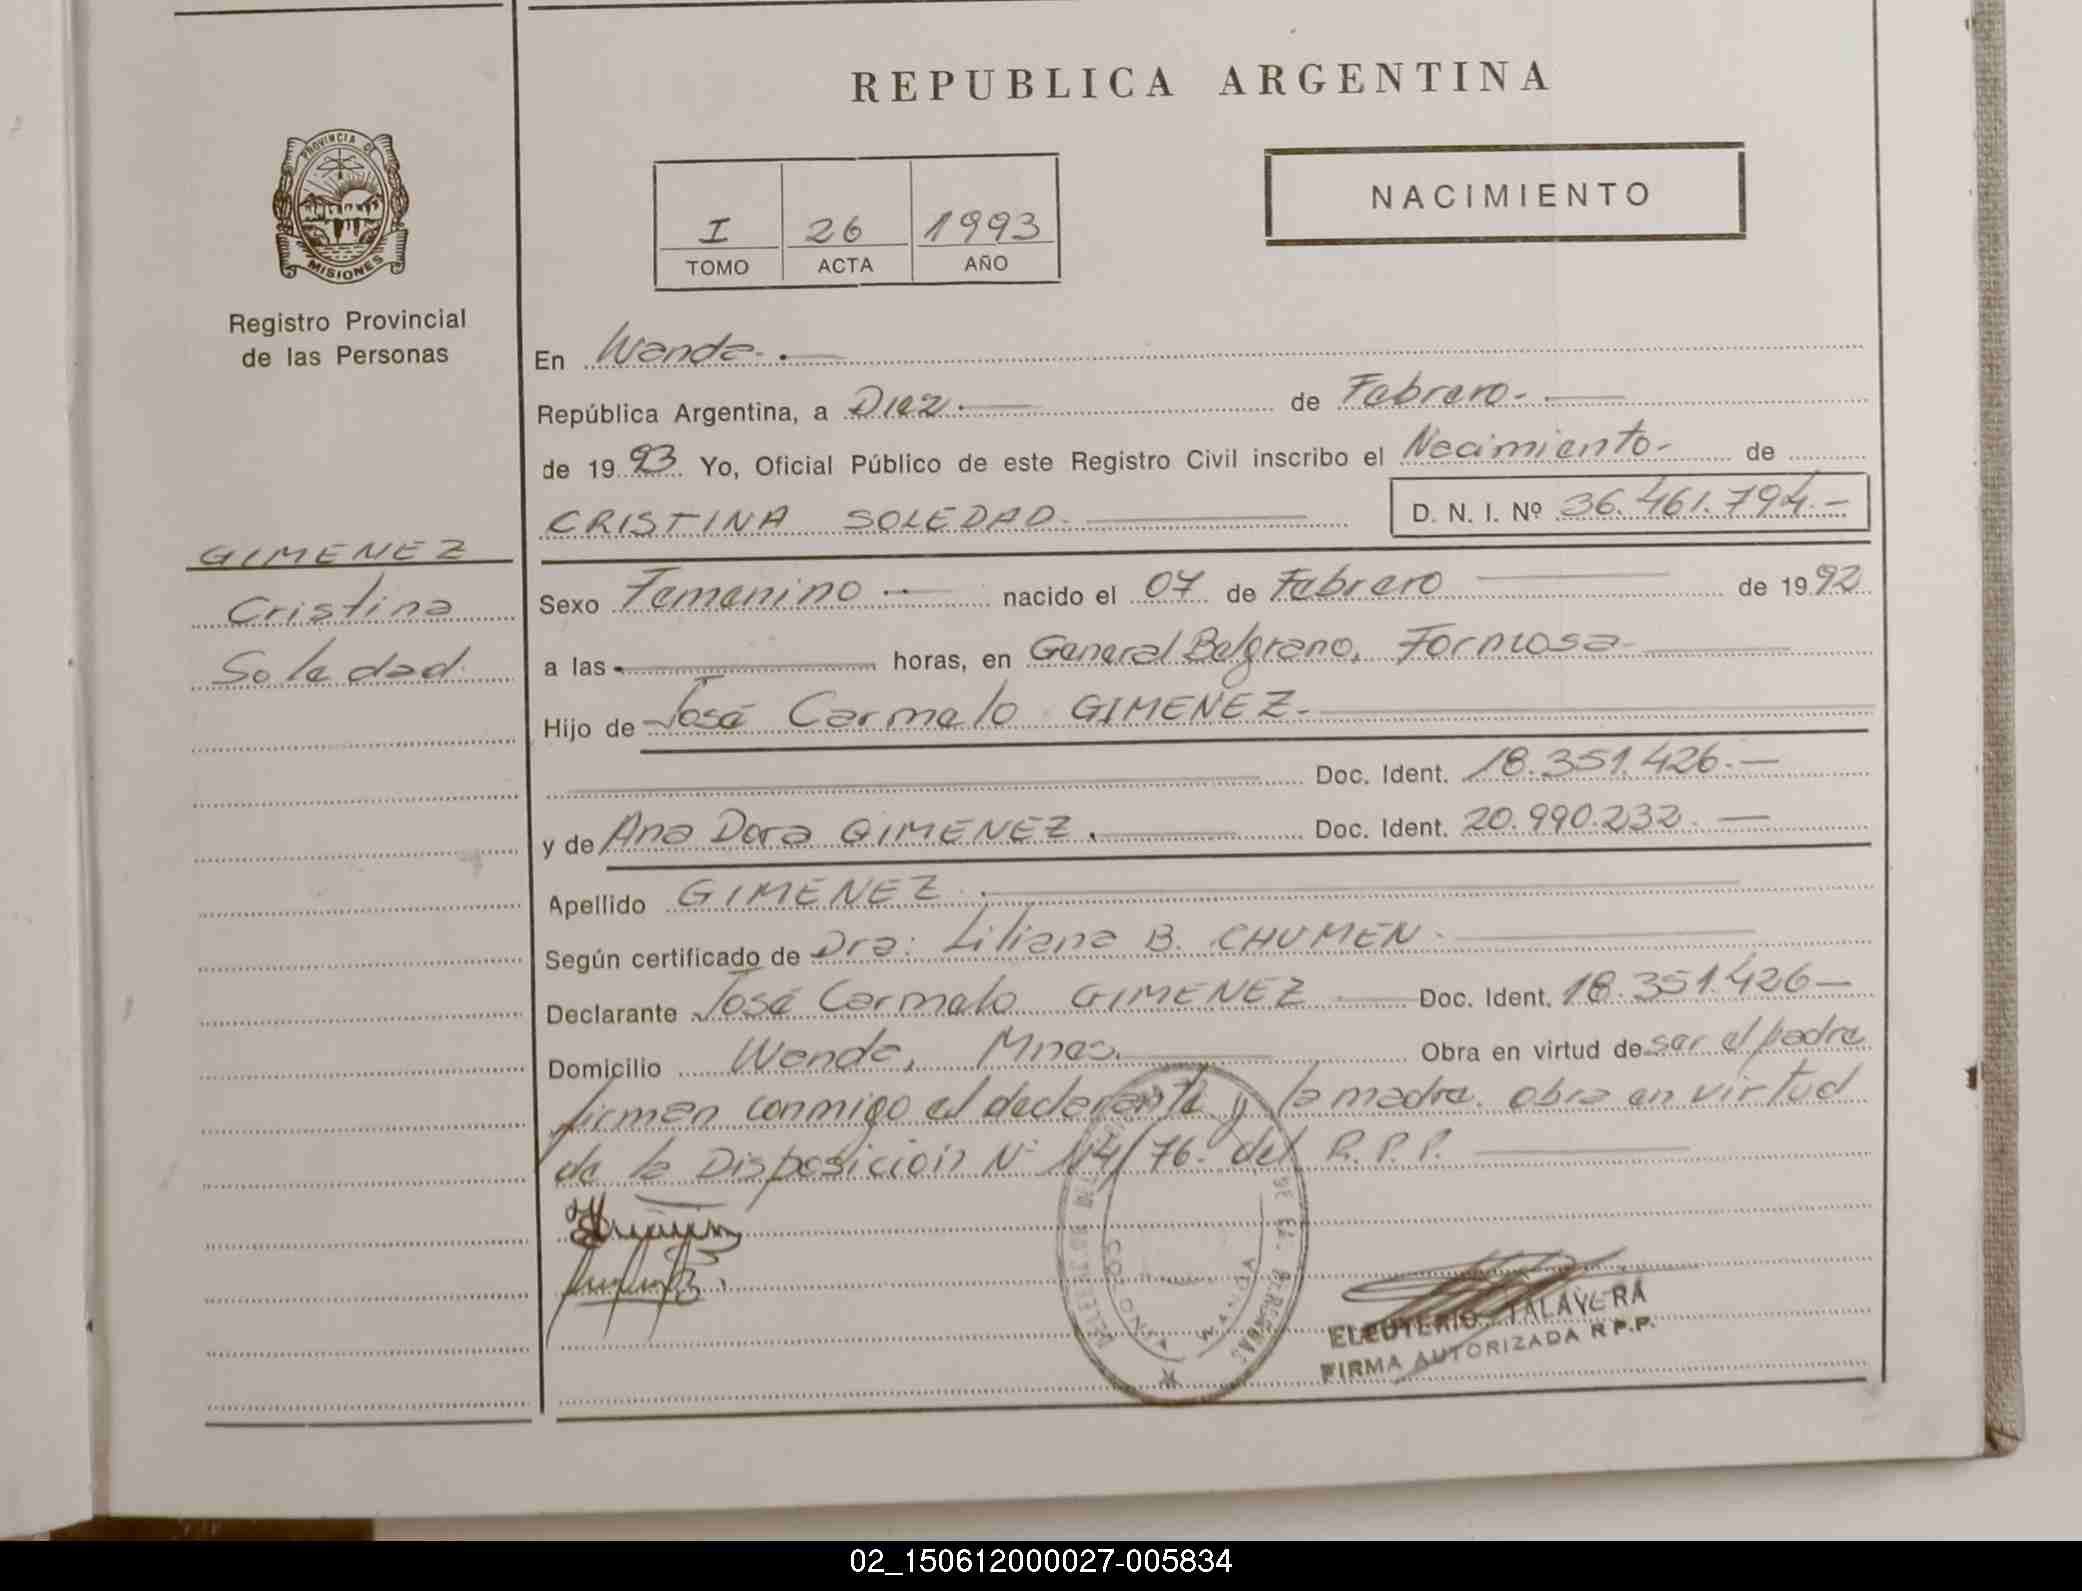 REPUBLICA ARGENTINA
NACIMIENTO
I 26 1993
TOMO ACTA AÑO
PROVINCIA DE
MISIONES
Registro Provincial
de las Personas
GIMENEZ
Cristina
Soledad
En Wanda.
República Argentina, a Diez. de Febrero.
de 1993 Yo, Oficial Público de este Registro Civil inscribo el Nacimiento de
CRISTINA SOLEDAD. D. N. I. Nº 36.461.794.-
Sexo Femenino nacido el 07 de Febrero de 1992
a las horas, en General Belgrano, Formosa
Hijo de José Carmelo GIMENEZ.
Doc. Ident. 18.351.426.-
y de Ana Dora GIMENEZ. Doc. Ident. 20.990.232.-
Apellido GIMENEZ.
Según certificado de Dra: Liliana B. CHUMEN.
Declarante José Carmelo GIMENEZ Doc. Ident. 18.351.426-
Domicilio Wanda, Mnes. Obra en virtud de ser el padre
firman conmigo el declarante y la madre. obra en virtud
de la Disposición Nº 114/76. del R.P.P.
WANDA
ELEUTERIO TALAVERA
FIRMA AUTORIZADA R.P.P.
02_150612000027-005834